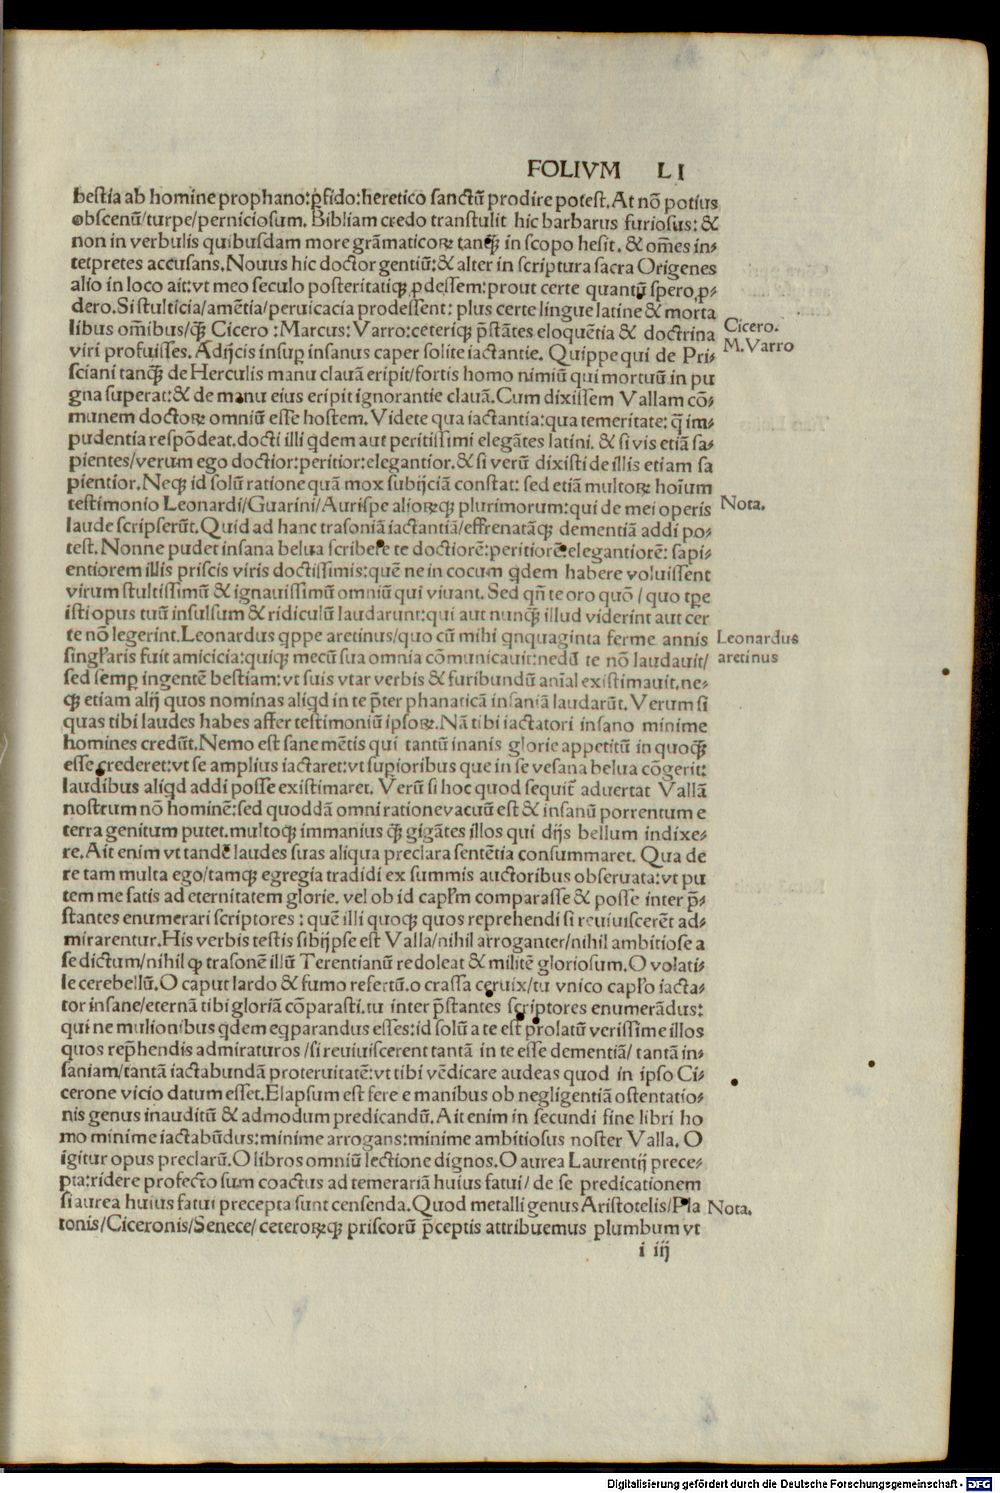 FOLIVM LI
bestia ab homine prophano:p̱fido:heretico sanctū prodire potest. At nō potius
obscenū/turpe/perniciosum. Bibliam credo transtulit hic barbarus furiosus: &
non in verbulis quibusdam more grāmaticoꝝ tanꝙ̄ in scopo hesit. & om̄es in⸗
tetpretes accusans. Nouus hic doctor gentiū: & alter in scriptura sacra Origenes
alio in loco ait: vt meo seculo posteritatiqꝫ ꝓdessem: prout certe quantū spero ꝓ⸗
dero. Si stulticia/amētia/peruicacia prodessent: plus certe lingue latine & morta
libus om̄ibus/ꝙ̄ Cicero: Marcus: Varro: ceteriqꝫ p̄stātes eloquētia & doctrina
Cicero.
M. Varro
viri profuisses. Adijcis insuꝑ insanus caper solite iactantie. Quippe qui de Pri⸗
sciani tanꝙ̄ de Herculis manu clauā eripit/fortis homo nimiū qui mortuū in pu
gna superat: & de manu eius eripit ignorantie clauā. Cum dixissem Vallam cō⸗
munem doctoꝝ omniū esse hostem. Videte qua iactantia: qua temeritate: q̄ im⸗
pudentia respōdeat. docti illi qdem aut peritissimi elegātes latini. & si vis etiā sa⸗
pientes/verum ego doctior: peritior: elegantior. & si verū dixisti de illis etiam sa
pientior. Neqꝫ id solū ratione quā mox subijciā constat: sed etiā multoꝝ hoīum
testimonio Leonardi/Guarini/Aurispe alioꝝqꝫ plurimorum: qui de mei operis
Nota.
laude scripserūt. Quid ad hanc trasoniā iactantiā/effrenatāqꝫ dementiā addi po⸗
test. Nonne pudet insana belua scribere te doctiorē: peritiorē: elegantiorē: sapi⸗
entiorem illis priscis viris doctissimis: quē ne in cocum qdem habere voluissent
virum stultissimū & ignauissimū omniū qui viuant. Sed qn̄ te oro quō/quo tꝑe
isti opus tuū insulsum & ridiculū laudarunt: qui aut nunꝙ̄ illud viderint aut cer
te nō legerint. Leonardus qppe aretinus/quo cū mihi qnquaginta ferme annis
Leonardus
aretinus
singl'aris fuit amicicia: quiqꝫ mecū sua omnia cōmunicauit: nedū te nō laudauit/
sed semꝑ ingentē bestiam: vt suis vtar verbis & furibundū aīal existimauit. ne⸗
qꝫ etiam alij quos nominas aliqd in te p̄ter phanaticā insaniā laudarūt. Verum si
quas tibi laudes habes affer testimoniū ipsoꝝ. Nā tibi iactatori insano minime
homines credūt. Nemo est sane mētis qui tantū inanis glorie appetitū in quoqꝫ
esse crederet: vt se amplius iactaret: vt suꝑioribus que in se vesana belua cōgerit:
laudibus aliqd addi posse existimaret. Verū si hoc quod sequit̄ aduertat Vallā
nostrum nō hominē: sed quoddā omni ratione vacuū est & insanū porrentum e
terra genitum putet. multoqꝫ immanius ꝙ̄ gigātes illos qui dijs bellum indixe⸗
re. Ait enim vt tandē laudes suas aliqua preclara sentētia consummaret. Qua de
re tam multa ego/tamqꝫ egregia tradidi ex summis auctoribus obseruata: vt pu
tem me satis ad eternitatem glorie. vel ob id capl'm comparasse & posse inter p̄⸗
stantes enumerari scriptores: quē illi quoqꝫ quos reprehendi si reuiuiscerēt ad⸗
mirarentur. His verbis testis sibi ijpse est Valla/nihil arroganter/nihil ambitiose a
se dictum/nihil ꝙ trasonē illū Terentianū redoleat & militē gloriosum. O volati⸗
le cerebellū. O caput lardo & fumo refertū. o crassa ceruix/tu vnico capl'o iacta⸗
tor insane/eternā tibi gloriā cōparasti. tu inter p̄stantes scriptores enumerādus:
qui ne mulionibus qdem eqparandus esses: id solū a te est prolatū verissime illos
quos rep̄hendis admiraturos/si reuiuiscerent tantā in te esse dementiā/tantā in⸗
saniam/tantā iactabundā proteruitatē: vt tibi vēdicare audeas quod in ipso Ci⸗
cerone vicio datum esset. Elapsum est fere e manibus ob negligentiā ostentatio⸗
nis genus inauditū & admodum predicandū. Ait enim in secundi fine libri ho
mo minime iactabūdus: minime arrogans: minime ambitiosus noster Valla. O
igitur opus preclarū. O libros omniū lectione dignos. O aurea Laurentij prece⸗
pta: ridere profecto sum coactus ad temerariā huius fatui/de se predicationem
si aurea huius fatui precepta sunt censenda. Quod metalli genus Aristotelis/Pla
Nota.
tonis/Ciceronis/Senece/ceteroꝝqꝫ priscorū p̄ceptis attribuemus plumbum vt
i iij
Digitalisierung gefördert durch die Deutsche Forschungsgemeinschaft - DFG